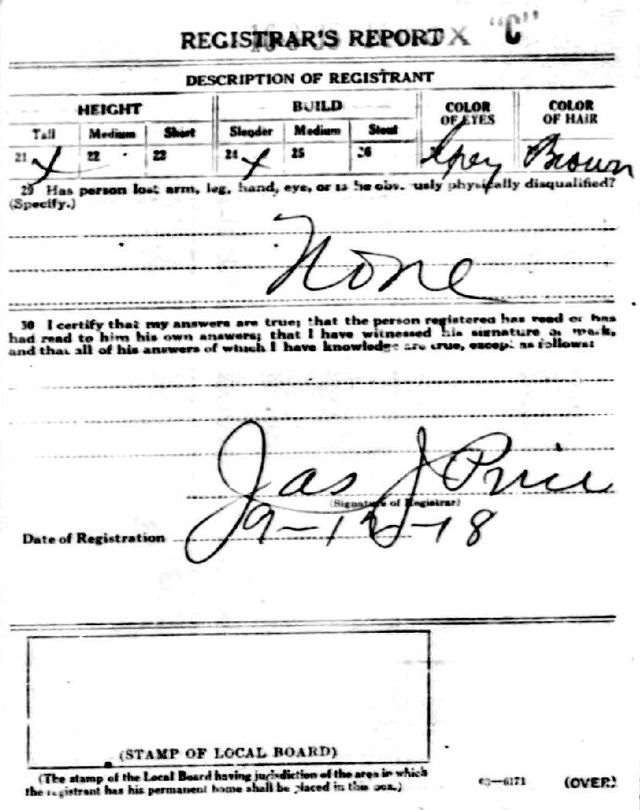 REGISTRAR'S REPORT X "C"
DESCRIPTION OF REGISTRANT
HEIGHT BUILD COLOR OF EYES COLOR OF HAIR
Tall Medium Short Slender Medium Stout
21 X 22 22 24 X 25 26 Grey Brown
29 Has person lost arm, leg, hand, eye, or is he obv. usly physically disqualified?
(Specify.)
None
30 I certify that my answers are true; that the person registered has read or has
had read to him his own answers; that I have witnessed his signature or mark,
and that all of his answers of which I have knowledge are true, except as follows:
Jas J Price
(Signature of Registrar)
Date of Registration 9-12-18
(STAMP OF LOCAL BOARD)
(The stamp of the Local Board having jurisdiction of the area in which
the registrant has his permanent home shall be placed in this box.)
63—6171 (OVER)